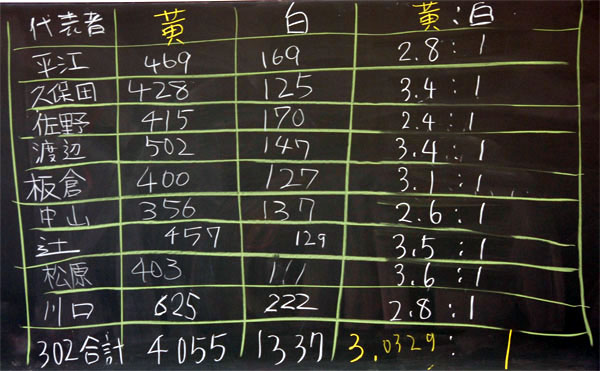 代表者 黄 白 黄:白
平江 469 169 2.8:1
久保田 428 125 3.4:1
佐野 415 170 2.4:1
渡辺 502 147 3.4:1
板倉 400 127 3.1:1
中山 356 137 2.6:1
辻 457 129 3.5:1
松原 403 111 3.6:1
川口 625 222 2.8:1
302合計 4055 1337 3.0329:1